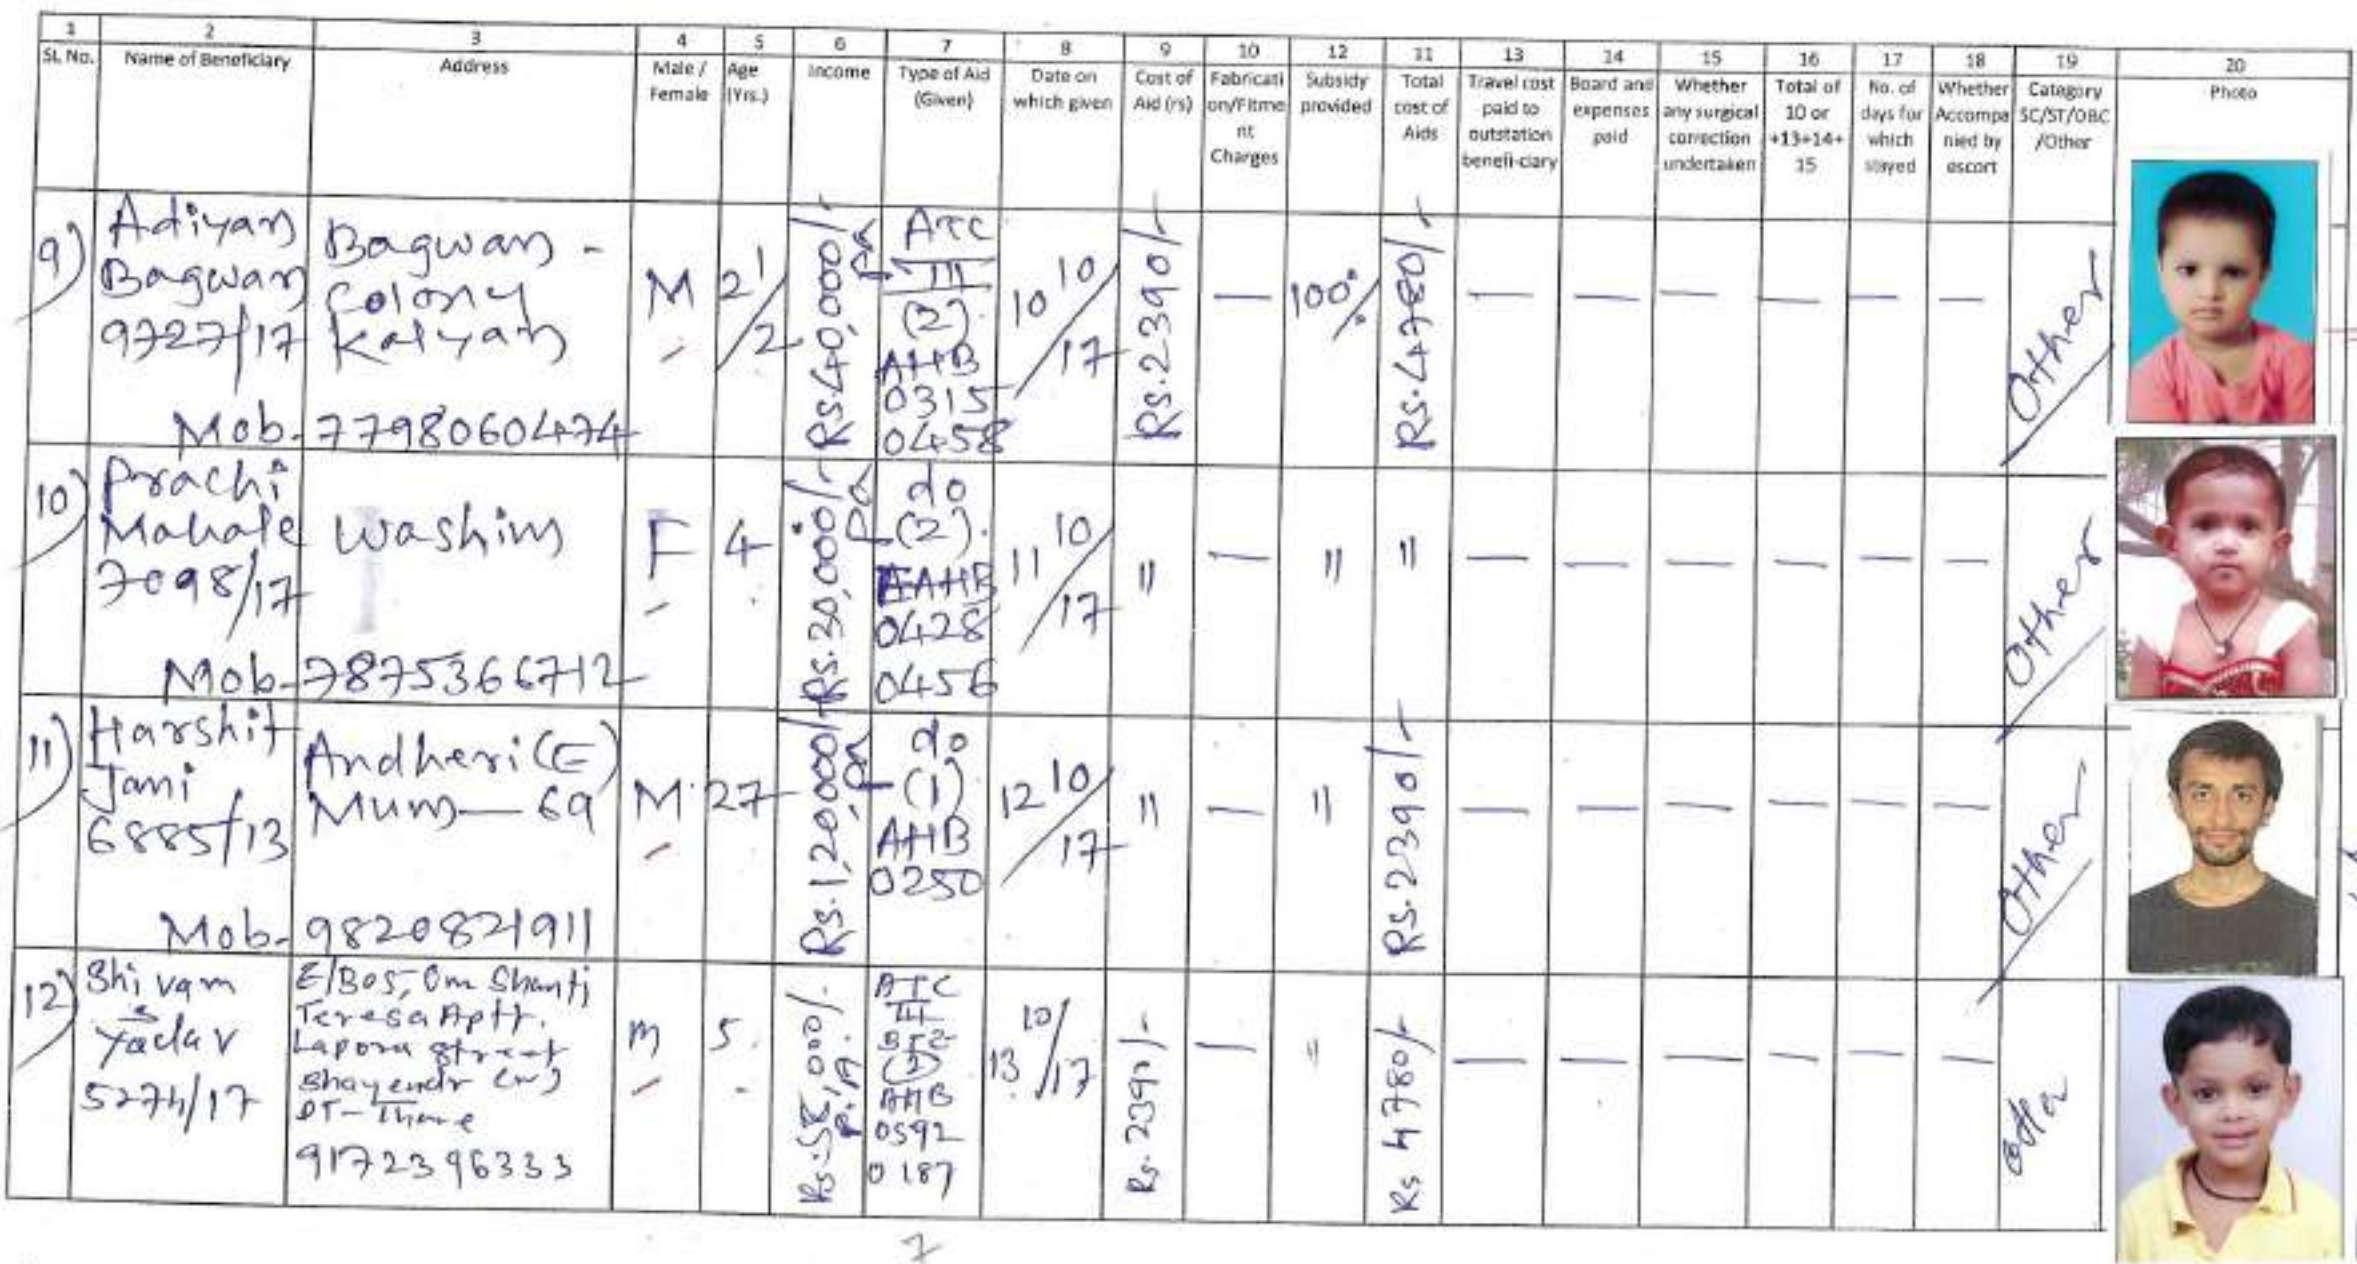 1 2 3 4 5 6 7 8 9 10 12 11 13 14 15 16 17 18 19 20
SL. No. Name of Beneficiary Address Male / Female Age (Yrs.) Income Type of Aid (Given) Date on which given Cost of Aid (rs) Fabricati on/Fitme nt Charges Subsidy provided Total cost of Aids Travel cost paid to outstation benefi-ciary Board and expenses paid Whether any surgical correction undertaken Total of 10 or +13+14+ 15 No. of days for which stayed Whether Accompa nied by escort Category SC/ST/OBC /Other Photo
9) Adiyan Bagwan 9727/17 Bagwan - Colony Kalyan M 2 1/2 Rs.40,000/- PA ATC III (2). AHB 0315 0458 10 10/17 Rs.2390/- — 100% Rs.4780/- — — — — — — Other
Mob. 7798060474
10) Prachi Mahale 7098/17 Washim F 4 Rs.30,000/- PA do (2). AHB 0428 0456 11 10/17 " — " " — — — — — — Other
Mob-7875366712
11) Harshit Jani 6885/13 Andheri (E) Mum— 69 M 27 Rs.1,20,000/- PA do (1) AHB 0250 12 10/17 " — " Rs.2390/- — — — — — — Other
Mob- 9820821911
12) Shivam Yadav 5274/17 E/B05, Om Shanti Teresa Aptt. Street Bhayendr (W) DT- Thane M 5. Rs.58,000/- P.A. ATC III BTE (2) AHB 0592 0187 13 10/17 Rs.2390/- — " Rs 4780/- — — — — — —
9172396333
7